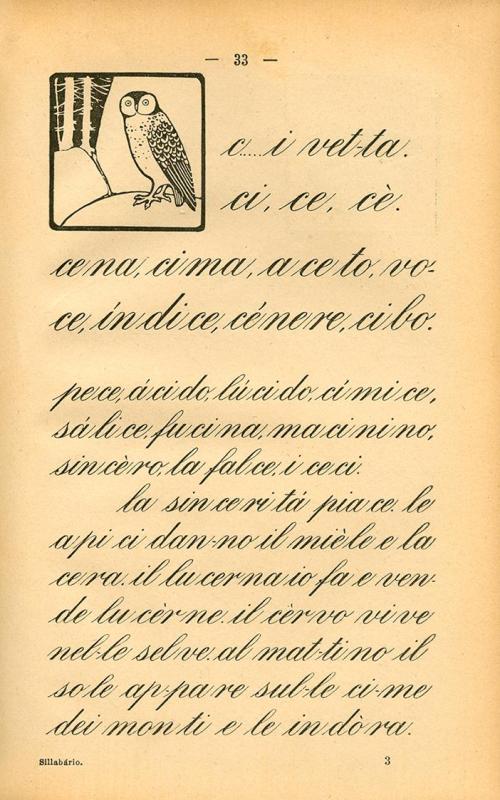 — 33 —
c.....i vet-ta.
ci, ce, cè.
ce na, ci ma, a ce to, vo-
ce, ín di ce, cé ne re, ci bo.
pe ce, á ci do, lú ci do, cí mi ce,
sá li ce, fu ci na, ma ci ni no,
sin cè ro, la fal ce, i ce ci.
la sin ce ri tá pia ce. le
a pi ci dan-no il miè le e la
ce ra. il lu cer na io fa e ven-
de lu cèr ne. il cèr vo vi ve
nel-le sel ve. al mat-ti no il
so le ap-pa re sul-le ci-me
dei mon ti e le in dò ra.
Sillabário.
3